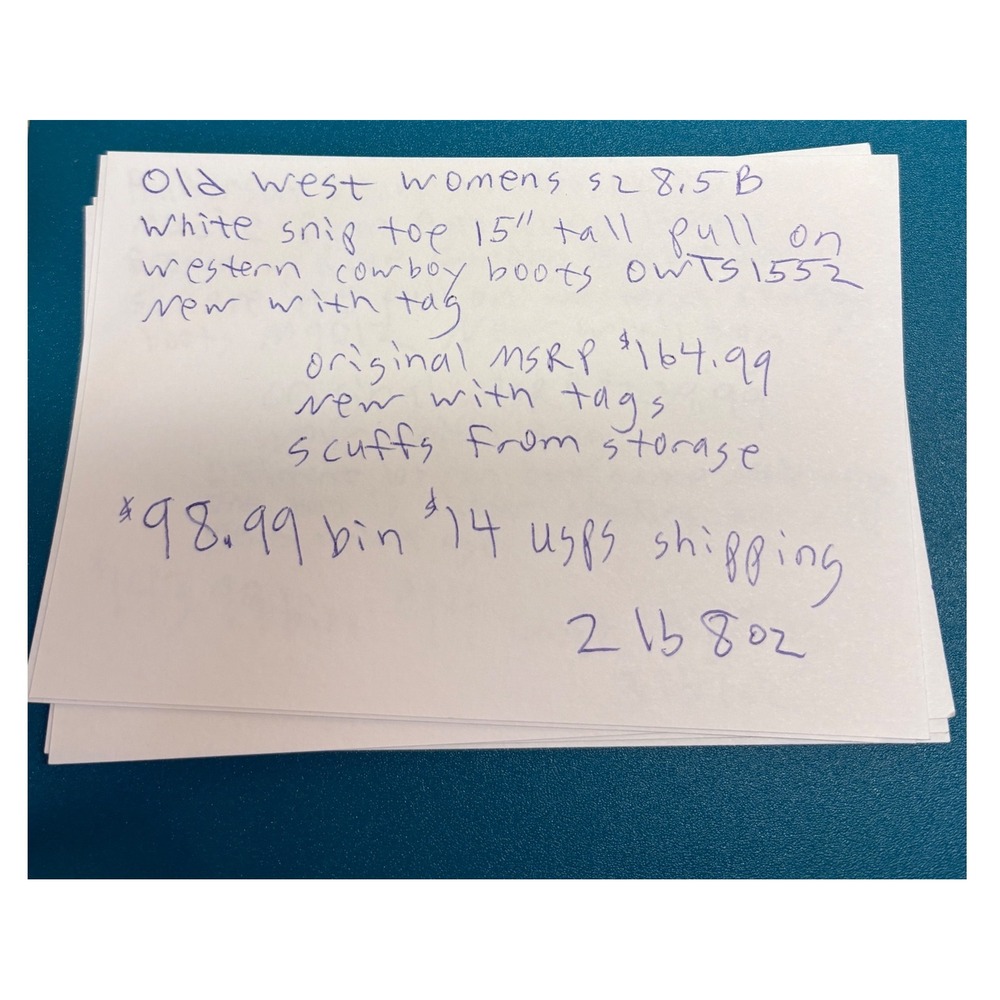 Old west womens sz 8.5 B
white snip toe 15" tall pull on
western cowboy boots OWTS1552
new with tag
original MSRP $164.99
new with tags
scuffs from storage
$98.99 bin $14 usps shipping
2 lb 8 oz